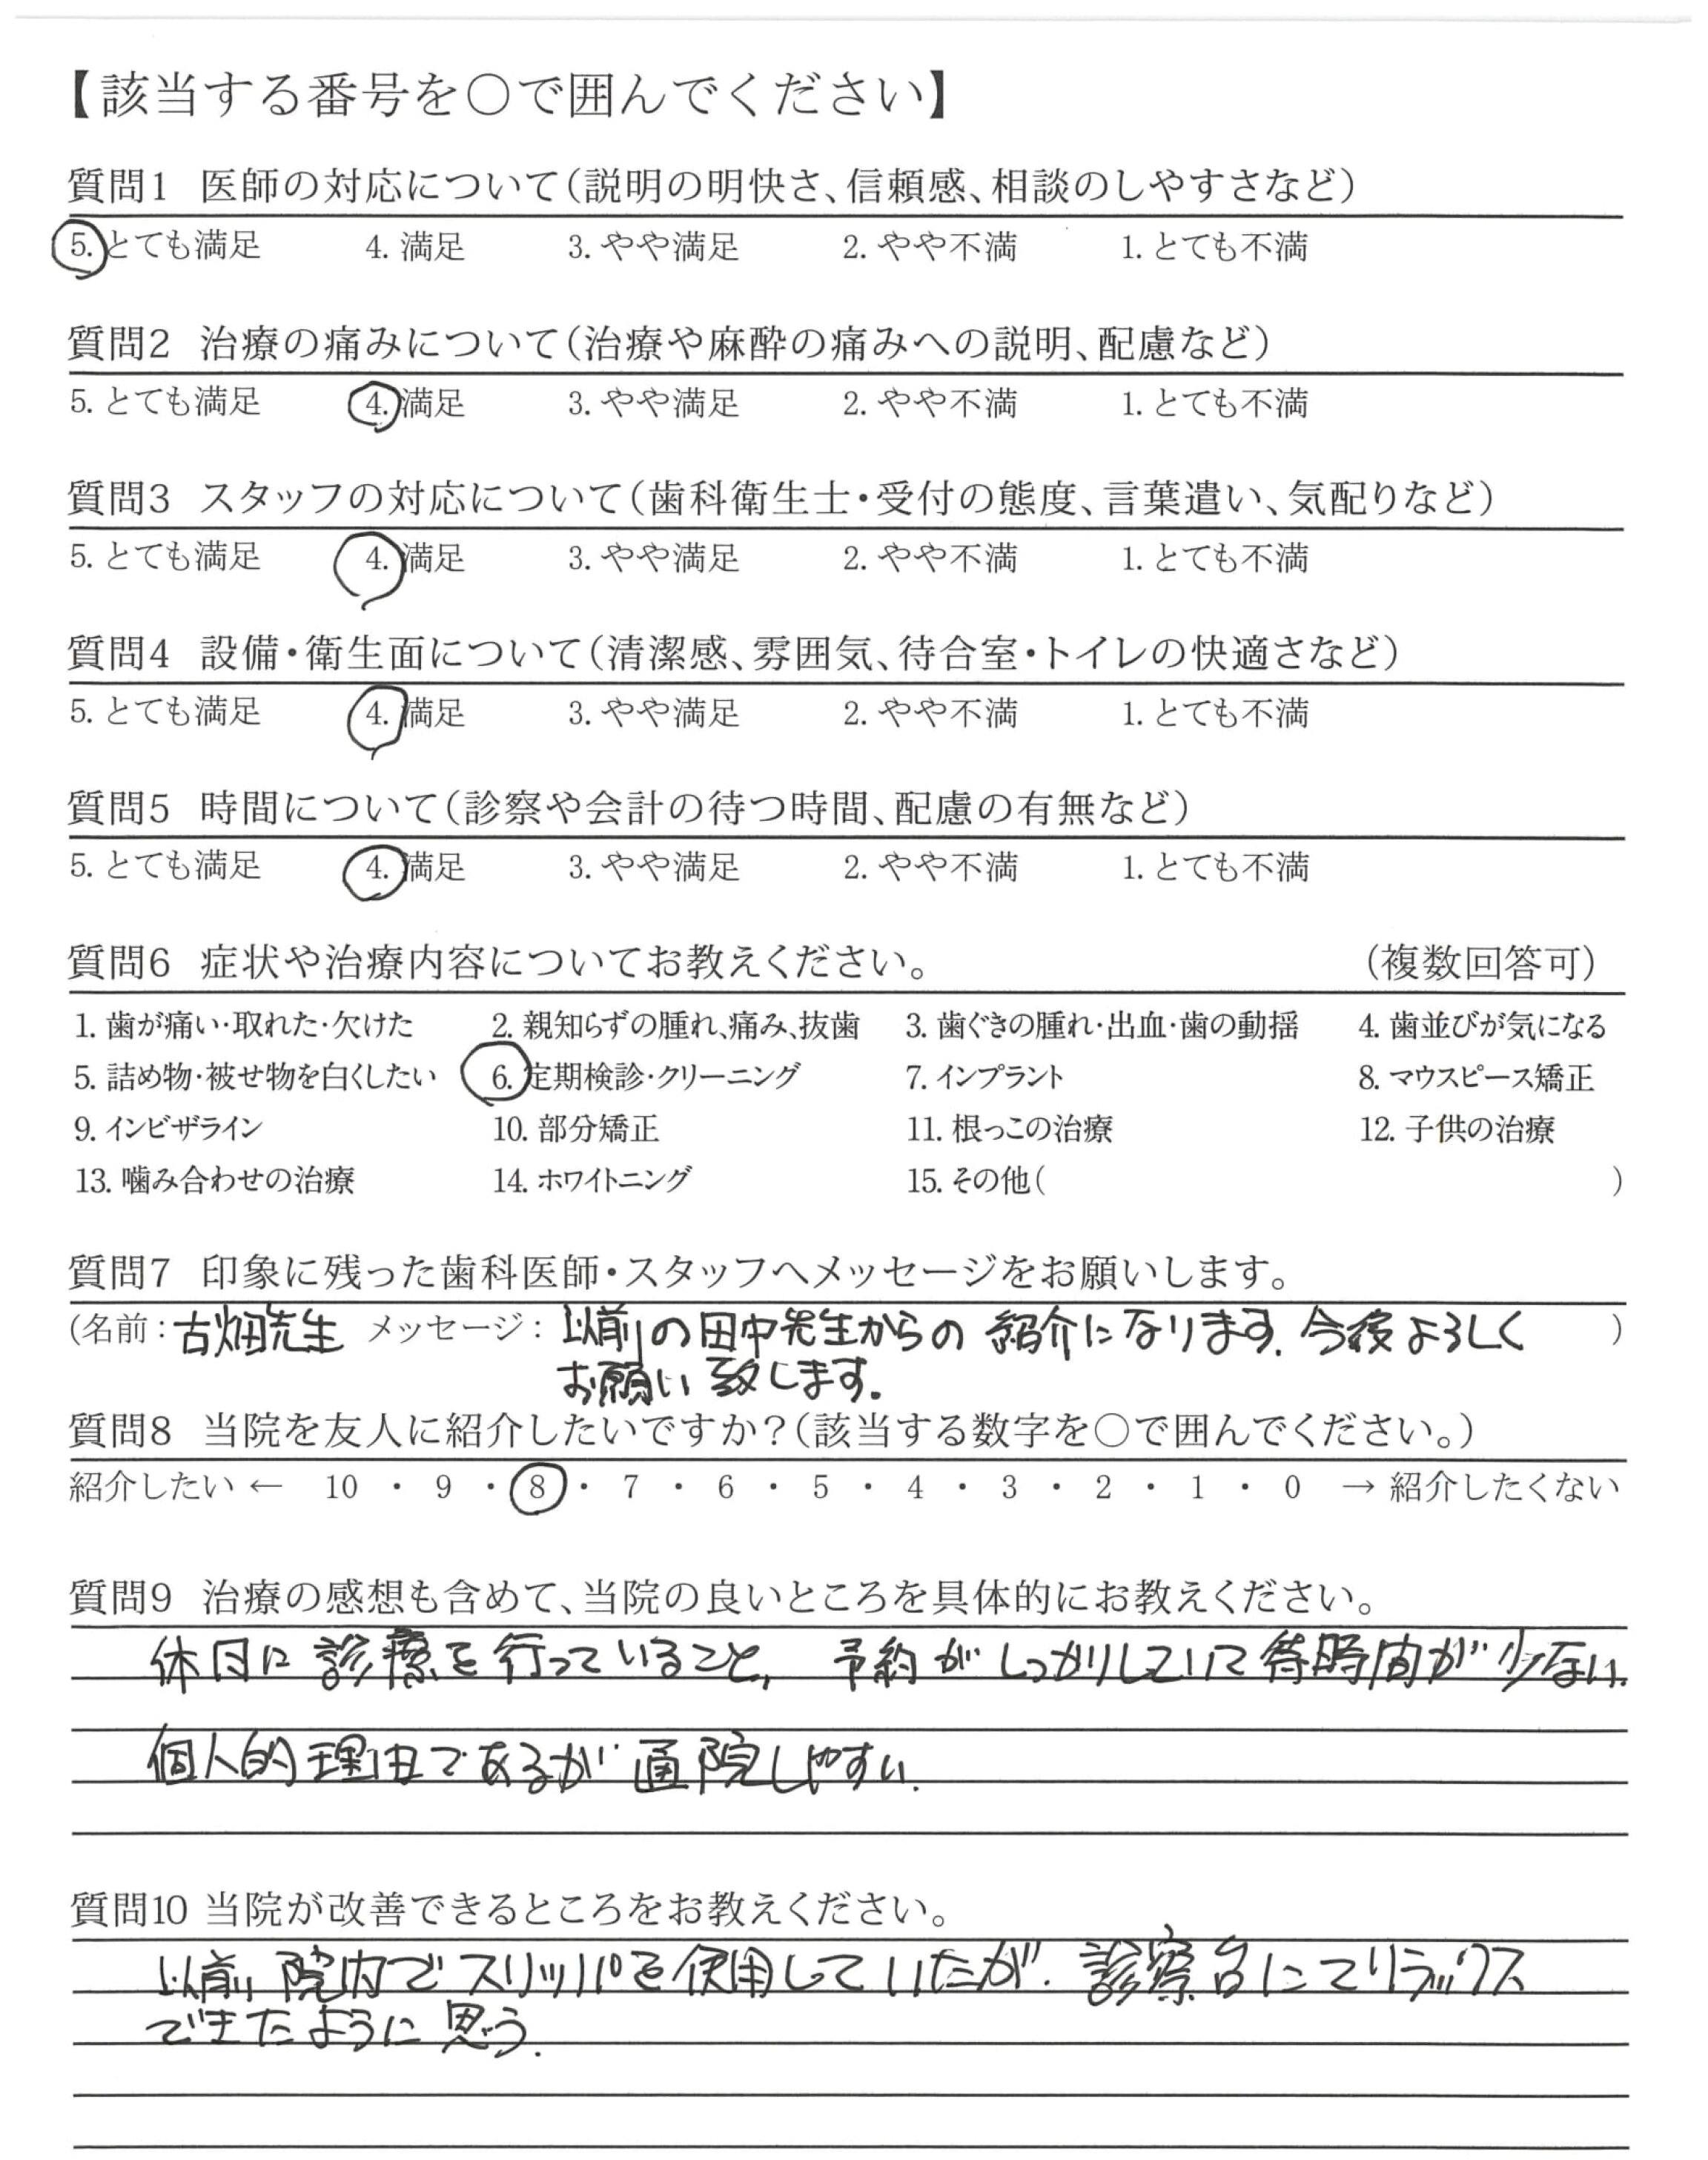 【該当する番号を○で囲んでください】
質問1 医師の対応について(説明の明快さ、信頼感、相談のしやすさなど)
5. とても満足 4. 満足 3. やや満足 2. やや不満 1. とても不満
質問2 治療の痛みについて(治療や麻酔の痛みへの説明、配慮など)
5. とても満足 4. 満足 3. やや満足 2. やや不満 1. とても不満
質問3 スタッフの対応について(歯科衛生士・受付の態度、言葉遣い、気配りなど)
5. とても満足 4. 満足 3. やや満足 2. やや不満 1. とても不満
質問4 設備・衛生面について(清潔感、雰囲気、待合室・トイレの快適さなど)
5. とても満足 4. 満足 3. やや満足 2. やや不満 1. とても不満
質問5 時間について(診察や会計の待つ時間、配慮の有無など)
5. とても満足 4. 満足 3. やや満足 2. やや不満 1. とても不満
質問6 症状や治療内容についてお教えください。 (複数回答可)
1. 歯が痛い・取れた・欠けた 2. 親知らずの腫れ、痛み、抜歯 3. 歯ぐきの腫れ・出血・歯の動揺 4. 歯並びが気になる
5. 詰め物・被せ物を白くしたい 6. 定期検診・クリーニング 7. インプラント 8. マウスピース矯正
9. インビザライン 10. 部分矯正 11. 根っこの治療 12. 子供の治療
13. 噛み合わせの治療 14. ホワイトニング 15. その他( )
質問7 印象に残った歯科医師・スタッフへメッセージをお願いします。
(名前：古畑先生 メッセージ：以前の田中先生からの紹介になります。今後よろしく )
お願い致します。
質問8 当院を友人に紹介したいですか？(該当する数字を○で囲んでください。)
紹介したい ← 10 ・ 9 ・ 8 ・ 7 ・ 6 ・ 5 ・ 4 ・ 3 ・ 2 ・ 1 ・ 0 → 紹介したくない
質問9 治療の感想も含めて、当院の良いところを具体的にお教えください。
休日に診療を行っていること、予約がしっかりしていて待時間が少ない。
個人的理由であるが通院しやすい。
質問10 当院が改善できるところをお教えください。
以前、院内でスリッパを使用していたが、診察台にてリラックス
できたように思う。